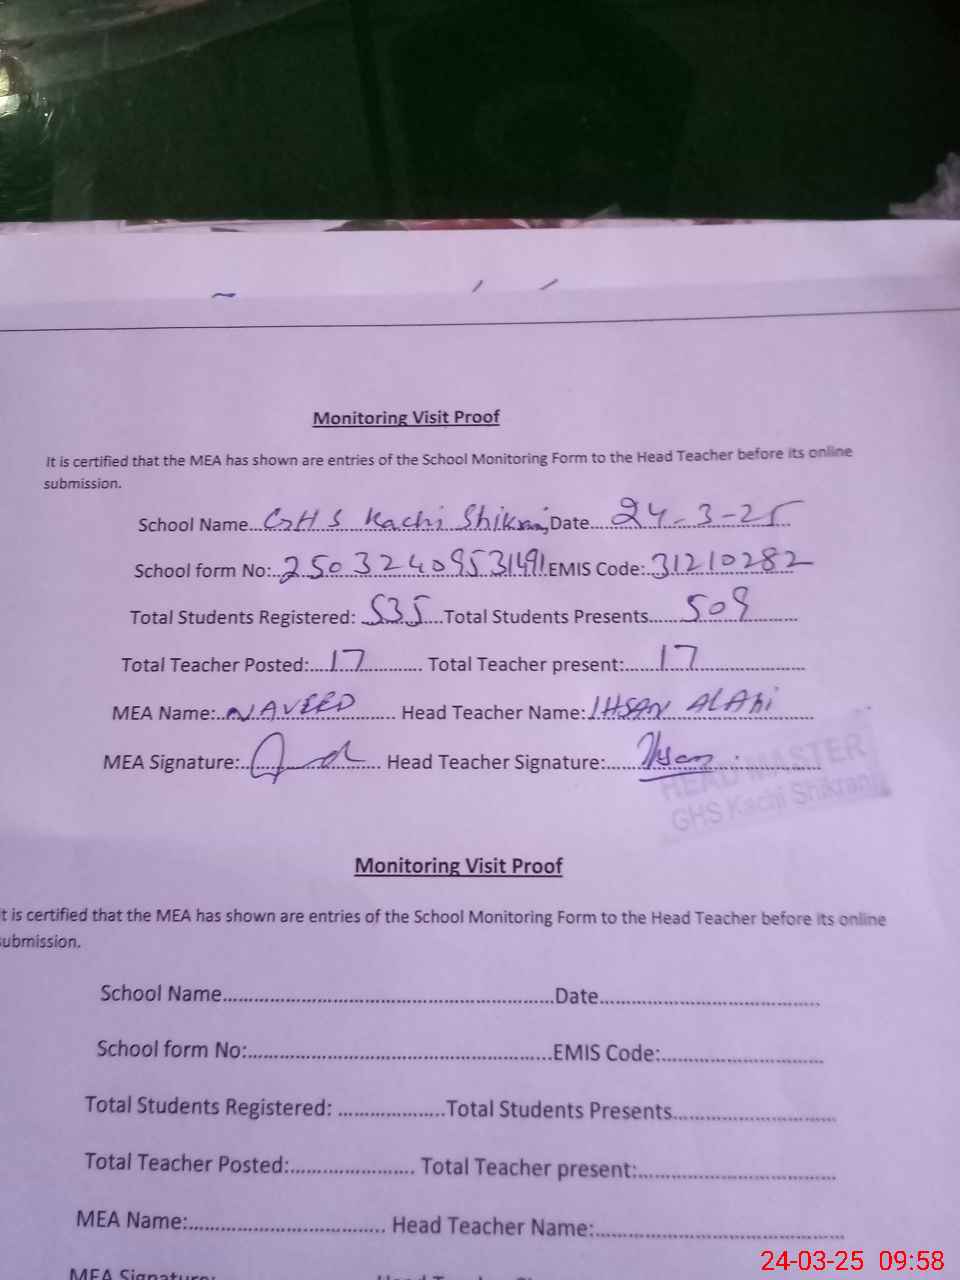 Monitoring Visit Proof
It is certified that the MEA has shown are entries of the School Monitoring Form to the Head Teacher before its online
submission.
School Name...GHS Kachi Shikrani Date....24-3-25
School form No:..25032409531491 EMIS Code:.31210282
Total Students Registered: 535....Total Students Presents......509
Total Teacher Posted:...17............ Total Teacher present:......17
MEA Name:..NAVEED........ Head Teacher Name:IHSAN ALAhi
MEA Signature:................ Head Teacher Signature:.....Ihsan
HEAD MASTER
GHS Kachi Shikrani
Monitoring Visit Proof
t is certified that the MEA has shown are entries of the School Monitoring Form to the Head Teacher before its online
submission.
School Name.....................................................Date....................................
School form No:.................................................EMIS Code:..........................
Total Students Registered: .................Total Students Presents..........................
Total Teacher Posted:.................... Total Teacher present:................................
MEA Name:................................ Head Teacher Name:........................................
MEA Signature:
24-03-25 09:58